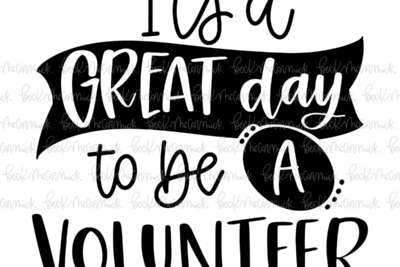 It's a
GREAT day
to be A
VOLUNTEER
Beck McCormick